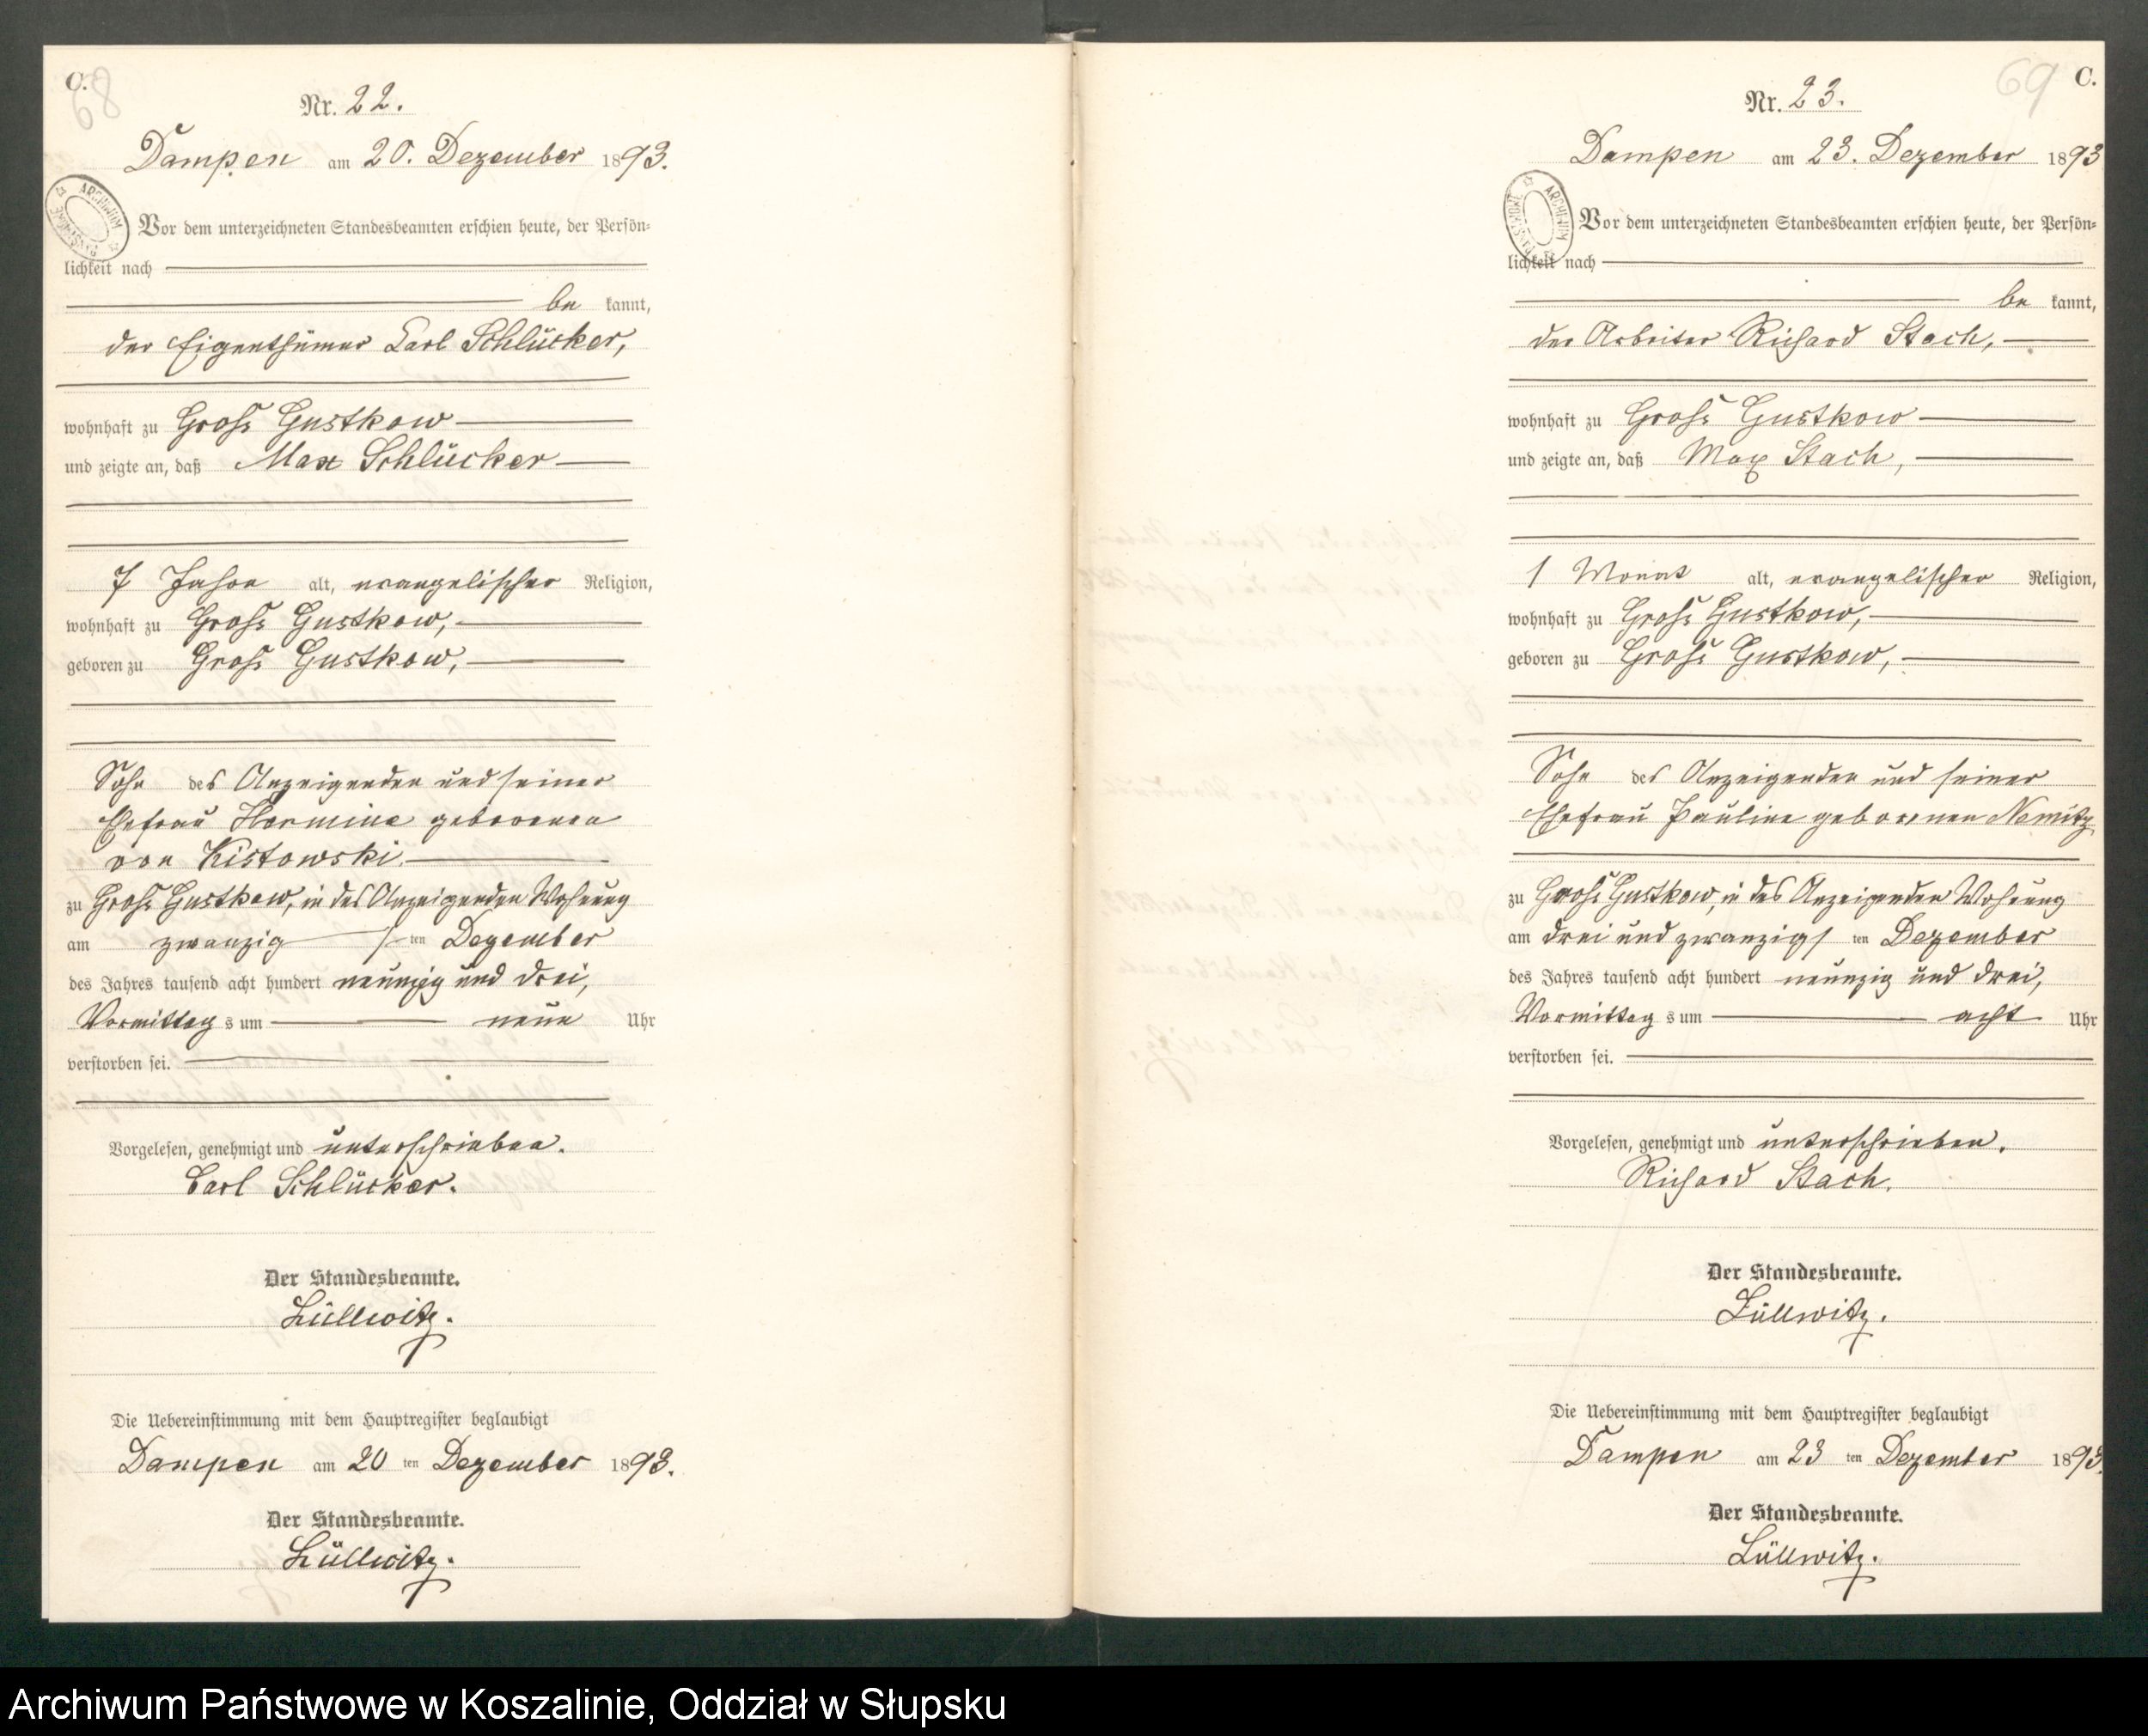 C.
68
Nr. 22.
Dampen am 20. Dezember 1893.
Vor dem unterzeichneten Standesbeamten erschien heute, der Persön-
lichkeit nach
be kannt,
der Eigenthümer Carl Schlücker,
wohnhaft zu Groß Gustkow
und zeigte an, daß Max Schlücker
7 Jahre alt, evangelischer Religion,
wohnhaft zu Groß Gustkow,
geboren zu Groß Gustkow,
Sohn des Anzeigenden und seiner
Ehefrau Hermine geborenen
von Kistowski
zu Groß Gustkow, in des Anzeigenden Wohnung
am zwanzig ten Dezember
des Jahres tausend acht hundert neunzig und drei,
Vormittag s um neun Uhr
verstorben sei.
Vorgelesen, genehmigt und unterschrieben.
Carl Schlücker.
Der Standesbeamte.
Lüllwitz.
Die Uebereinstimmung mit dem Hauptregister beglaubigt
Dampen am 20 ten Dezember 1893.
Der Standesbeamte.
Lüllwitz.
69 C.
Nr. 23.
Dampen am 23. Dezember 1893
Vor dem unterzeichneten Standesbeamten erschien heute, der Persön-
lichkeit nach
be kannt,
der Arbeiter Richard Stach,
wohnhaft zu Groß Gustkow
und zeigte an, daß Max Stach,
1 Monat alt, evangelischer Religion,
wohnhaft zu Groß Gustkow,
geboren zu Groß Gustkow,
Sohn des Anzeigenden und seiner
Ehefrau Pauline geborenen Nemitz
zu Groß Gustkow, in des Anzeigenden Wohnung
am drei und zwanzigs ten Dezember
des Jahres tausend acht hundert neunzig und drei,
Vormittag s um acht Uhr
verstorben sei.
Vorgelesen, genehmigt und unterschrieben.
Richard Stach.
Der Standesbeamte.
Lüllwitz.
Die Uebereinstimmung mit dem Hauptregister beglaubigt
Dampen am 23 ten Dezember 1893.
Der Standesbeamte.
Lüllwitz.
Archiwum Państwowe w Koszalinie, Oddział w Słupsku